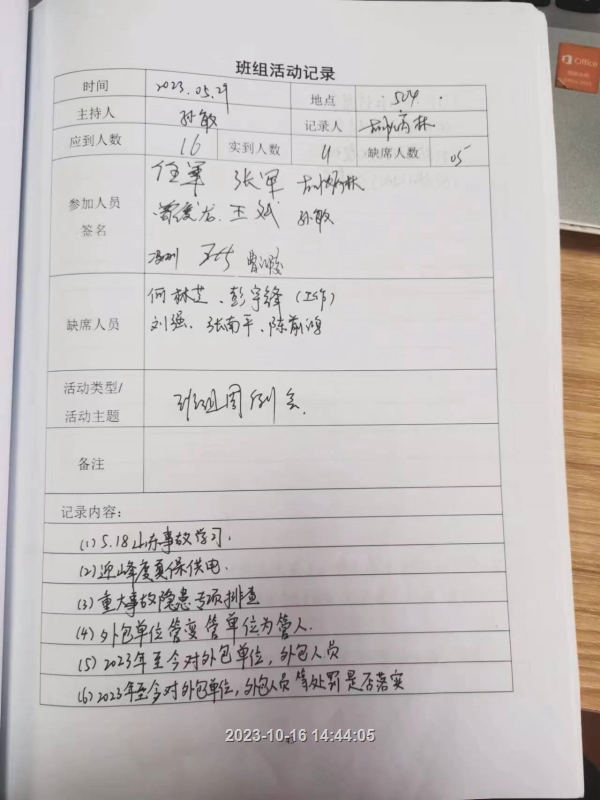 班组活动记录
时间 2023.05.29 地点 504.
主持人 孙敏 记录人
应到人数 16 实到人数 缺席人数 05
参加人员 签名 任军 张军
王斌 孙敏
缺席人员 何林芝、彭宇锋（工作）
刘强、张南平、陈前鸿
活动类型/ 活动主题 班组周例会.
备注
记录内容：
(1) 5.18山东事故学习.
(2) 迎峰度夏保供电.
(3) 重大事故隐患专项排查
(4) 外包单位管变管单位为管人.
(5) 2023年至今对外包单位，外包人员
(6) 2023年至今对外包单位，外包人员等处罚是否落实
2023-10-16 14:44:05
Office